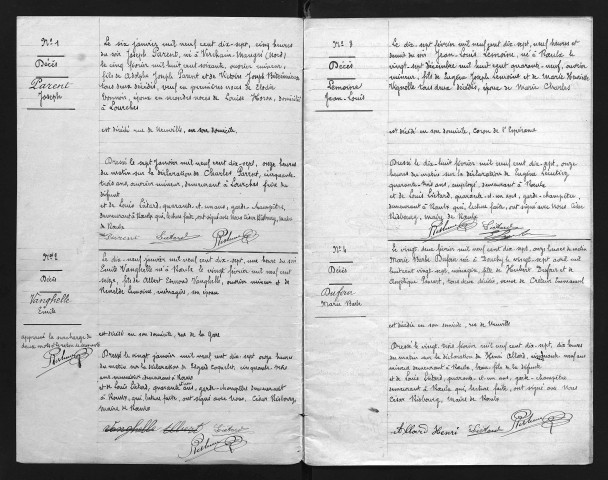 N° 1
Décès
Parent
Joseph
Le six janvier mil neuf cent dix-sept, cinq heures
du soir Joseph Parent, né à Verchain-Maugré (Nord),
le cinq février mil huit cent soixante-neuf, ouvrier mineur,
fils de Adolphe Joseph Parent et de Victoire Joseph
tous deux décédés, veuf en premières noces de Elodie
époux en secondes noces de Louise domicilié
à Lourches
est décédé rue de Neuville, en son domicile,
Dressé le sept janvier mil neuf cent dix-sept, onze heures
du matin sur la déclaration de Charles Parent, cinquante-
trois ans, ouvrier mineur, demeurant à Lourches frère du
défunt
et de Louis Liétard, quarante-et-un ans, garde-champêtre,
demeurant à Rœulx qui, lecture faite, ont signé avec Nous César Risbourg, maire
de Rœulx
Parent Liétard Risbourg
N° 2
Décès
Vanghelle
Emile
approuvé la surcharge de
deux mots
Risbourg
Le dix-neuf janvier mil neuf cent dix-sept, une heure du soir
Emile Vanghelle né à Rœulx le vingt février mil neuf cent
seize, fils de Albert Edmond Vanghelle, ouvrier mineur et de
ménagère, son épouse
est décédé en son domicile, rue de la Gare
Dressé le vingt janvier mil neuf cent dix sept onze heures
du matin sur la déclaration de cinquante-trois
ans demeurant à Rœulx
et de Louis Liétard, quarante ans, garde-champêtre demeurant
à Rœulx, qui, lecture faite, ont signé avec Nous, César Risbourg,
maire de Rœulx
Vanghelle Albert Liétard
Risbourg
N° 3
Décès
Lemoine
Jean-Louis
Le dix-sept février mil neuf cent dix-sept, neuf heures et
demie du soir Jean-Louis Lemoine, né à Rœulx le
vingt-sept décembre mil huit cent quarante-neuf, ouvrier
mineur, fils de Eugène Joseph Lemoine et de Marie Henriette
tous deux décédés, époux de Marie Charles
est décédé en son domicile, Coron de l'Espérance
Dressé le dix-huit février mil neuf cent dix-sept, onze
heures du matin sur la déclaration de Eugène
quarante-trois ans, employé, demeurant à Rœulx
et de Louis Liétard, quarante-et-un ans, garde-champêtre
demeurant à Rœulx, qui, lecture faite, ont signé avec Nous César
Risbourg, maire de Rœulx
Risbourg Liétard
N° 4
Décès
Dufour
Marie
Le vingt deux février mil neuf cent dix-sept, onze heures du matin
Marie Dufour née à Douchy le vingt-sept avril mil
huit cent vingt sept, ménagère, fille de Dufour et de
Angélique tous deux décédés, veuve de Emmanuel
est décédée en son domicile, rue de Neuville
Dressé le vingt trois février mil neuf cent dix sept, dix heures
du matin sur la déclaration de Henri Allard, cinquante neuf ans
mineur demeurant à Rœulx, beau-fils de la défunte
et de Louis Liétard, quarante-et-un ans, garde-champêtre
demeurant à Rœulx qui, lecture faite, ont signé avec Nous
César Risbourg, maire de Rœulx
Allard Henri Liétard Risbourg